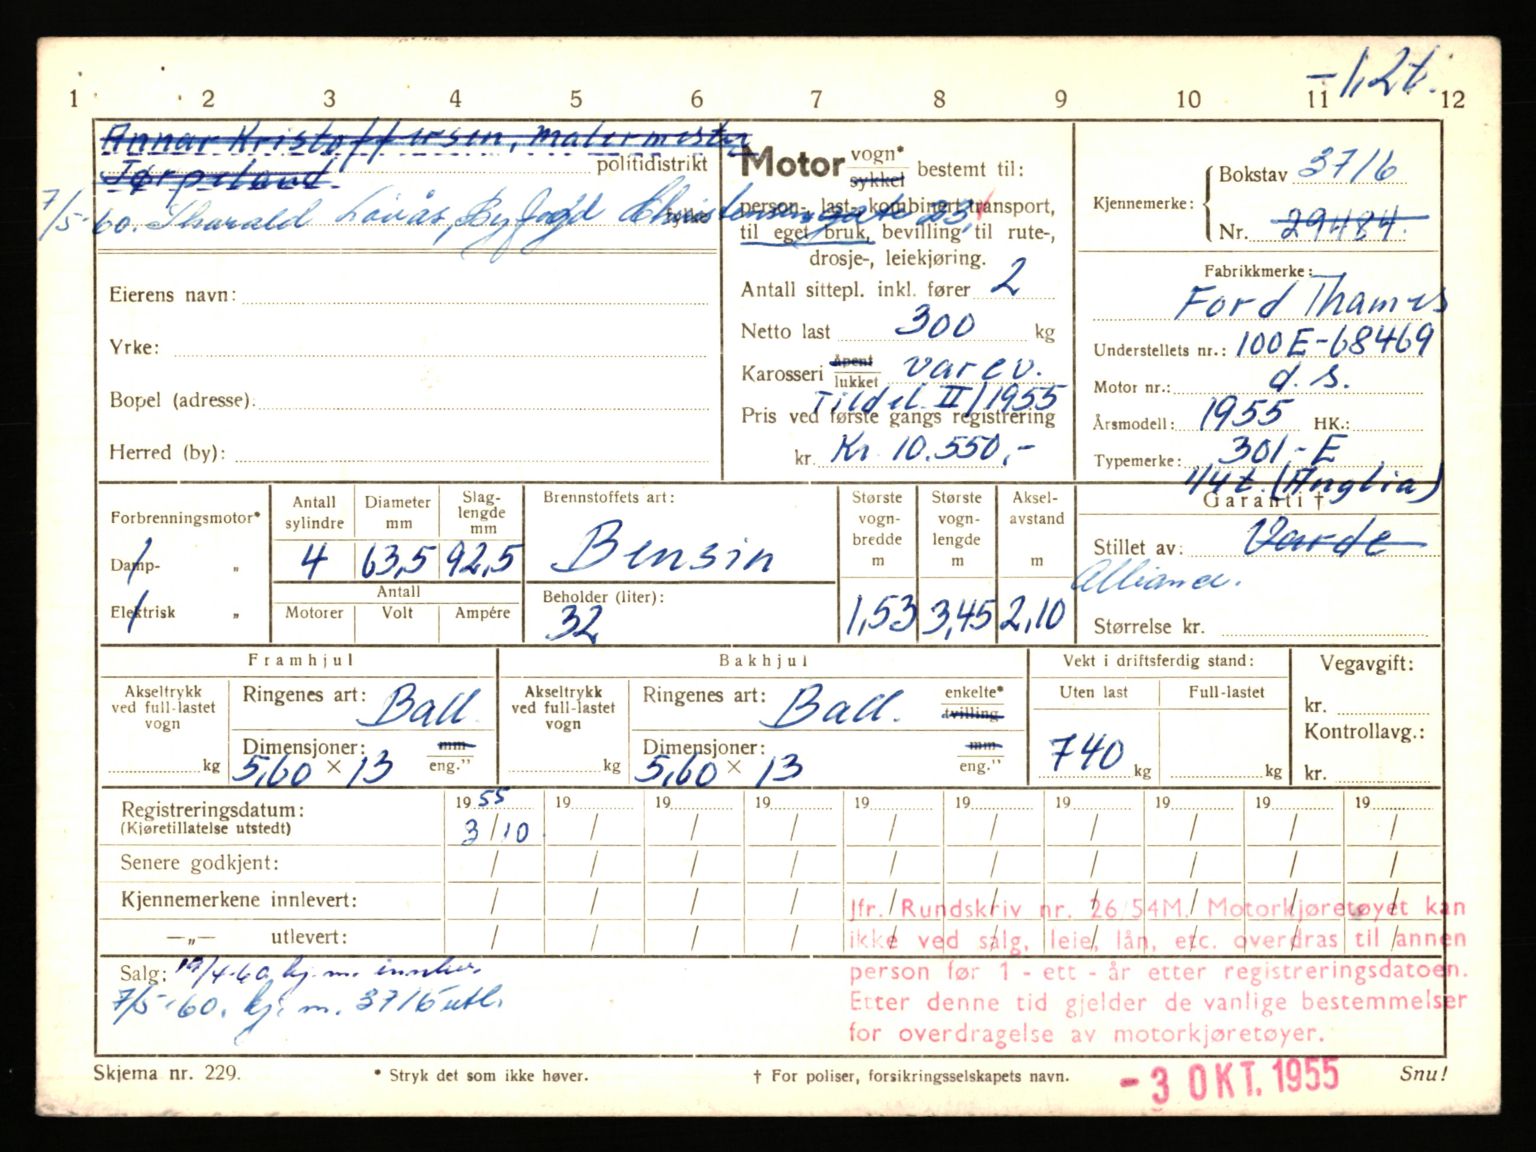 -1,2t.
1 2 3 4 5 6 7 8 9 10 11 12
Annar Kristoffersen, malermester
Jørpeland
politidistrikt
7/5-60. Tharald Løvås, Byfogd Christensensgate 23
fylke
Motor vogn* sykkel bestemt til:
person-, last-, kombinert transport,
til eget bruk, bevilling til rute-,
drosje-, leiekjøring.
Antall sittepl. inkl. fører 2
Netto last 300 kg
Karosseri åpent lukket varev.
Tildel. II/1955
Pris ved første gangs registrering
kr. Kr. 10.550,-
Kjennemerke: Bokstav 3716
Nr. 29484.
Fabrikkmerke:
Ford Thames
Understellets nr.: 100E-68469
Motor nr.: d.s.
Årsmodell: 1955 HK.:
Typemerke: 301-E
1/4t. (Anglia)
Eierens navn:
Yrke:
Bopel (adresse):
Herred (by):
Forbrenningsmotor*
Damp- „
Elektrisk „
Antall sylindre 4
Diameter mm 63,5
Slag-lengde mm 92,5
Antall
Motorer Volt Ampére
Brennstoffets art:
Bensin
Beholder (liter):
32
Største vogn-bredde m 1,53
Største vogn-lengde m 3,45
Aksel-avstand m 2,10
Garanti †
Stillet av: Varde
Alliance.
Størrelse kr.
Framhjul
Akseltrykk ved full-lastet vogn kg
Ringenes art: Ball.
Dimensjoner: mm eng."
5,60 × 13
Bakhjul
Akseltrykk ved full-lastet vogn kg
Ringenes art: Ball. enkelte* tvilling
Dimensjoner: mm eng."
5,60 × 13
Vekt i driftsferdig stand:
Uten last Full-lastet
740 kg kg
Vegavgift:
kr.
Kontrollavg.:
kr.
Registreringsdatum: 19 55 19 19 19 19 19 19 19 19 19
(Kjøretillatelse utstedt) 3/10 / / / / / / / / /
Senere godkjent: / / / / / / / / / /
Kjennemerkene innlevert: / / / / / / / / / /
—„— utlevert: / / / / / / / / / /
Salg: 19/4-60 kj.m. innlev.
7/5-60. kj. m. 3716 utl.
Jfr. Rundskriv nr. 26/54M. Motorkjøretøyet kan
ikke ved salg, leie, lån, etc. overdras til annen
person før 1 - ett - år etter registreringsdatoen.
Etter denne tid gjelder de vanlige bestemmelser
for overdragelse av motorkjøretøyer.
Skjema nr. 229. * Stryk det som ikke høver. † For poliser, forsikringsselskapets navn. Snu!
- 3 OKT. 1955